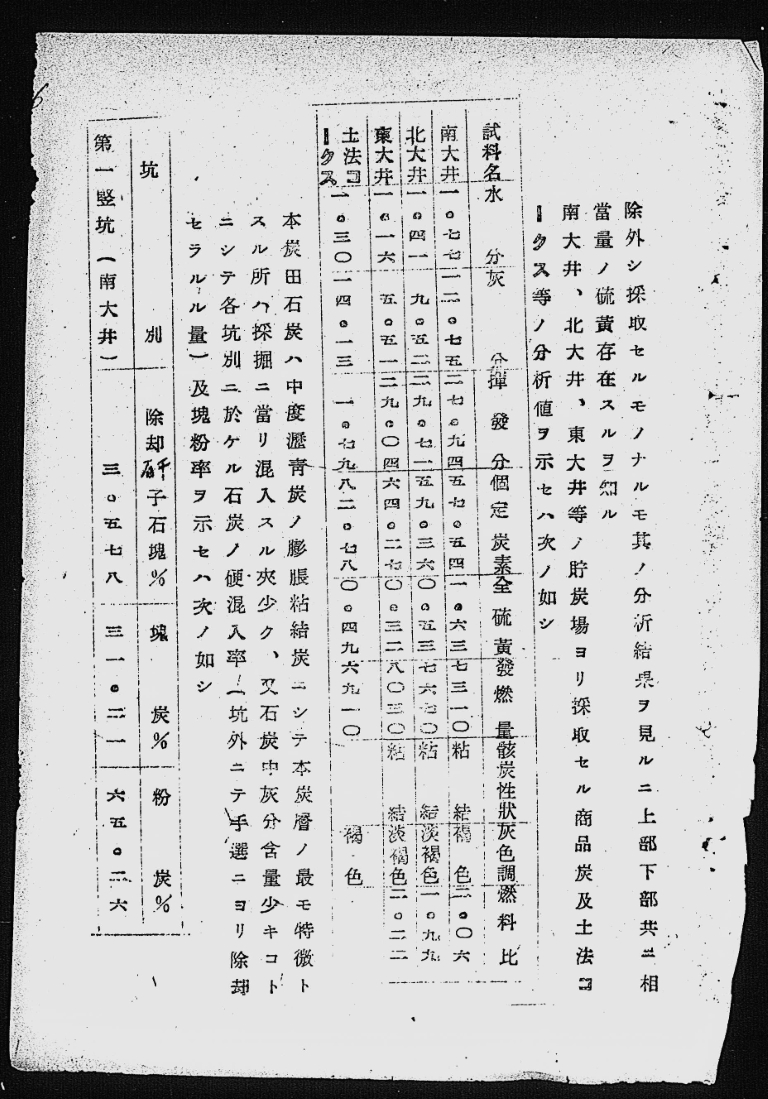 除外シ採取セルモノナルモ其ノ分析結果ヲ見ルニ上部下部共ニ相
當量ノ硫黃存在スルヲ知ル
南大井、北大井、東大井等ノ貯炭場ヨリ採取セル商品炭及土法コ
ークス等ノ分析値ヲ示セハ次ノ如シ
試料名 水分 灰分 揮發分 個定炭素 全硫黃 發燃量 骸炭性狀 灰色調 燃料比
南大井 一。七七 一二。七五 二七。九四 五七。五四 一。六三 七三一〇 粘結 褐色 二。〇六
北大井 一。四一 九。五二 二九。七一 五九。三六 〇。五三 七六七〇 粘結 淡褐色 一。九九
東大井 一。一六 五。五一 二九。〇四 六四。二七 〇。三二 八〇三〇 粘結 淡褐色 二。二二
土法コークス 一。三〇 一四。一三 一。七九 八二。七八 〇。四九 六九一〇 褐色
本炭田石炭ハ中度瀝靑炭ノ膨脹粘結炭ニシテ本炭層ノ最モ特徵ト
スル所ハ採掘ニ當リ混入スル夾少ク、又石炭中灰分含量少キコト
ニシテ各坑別ニ於ケル石炭ノ硬混入率(坑外ニテ手選ニヨリ除却
セラルル量)及塊粉率ヲ示セハ次ノ如シ
坑別 除却子石塊% 塊炭% 粉炭%
第一竪坑(南大井) 三。五七八 三一。二一 六五。二六